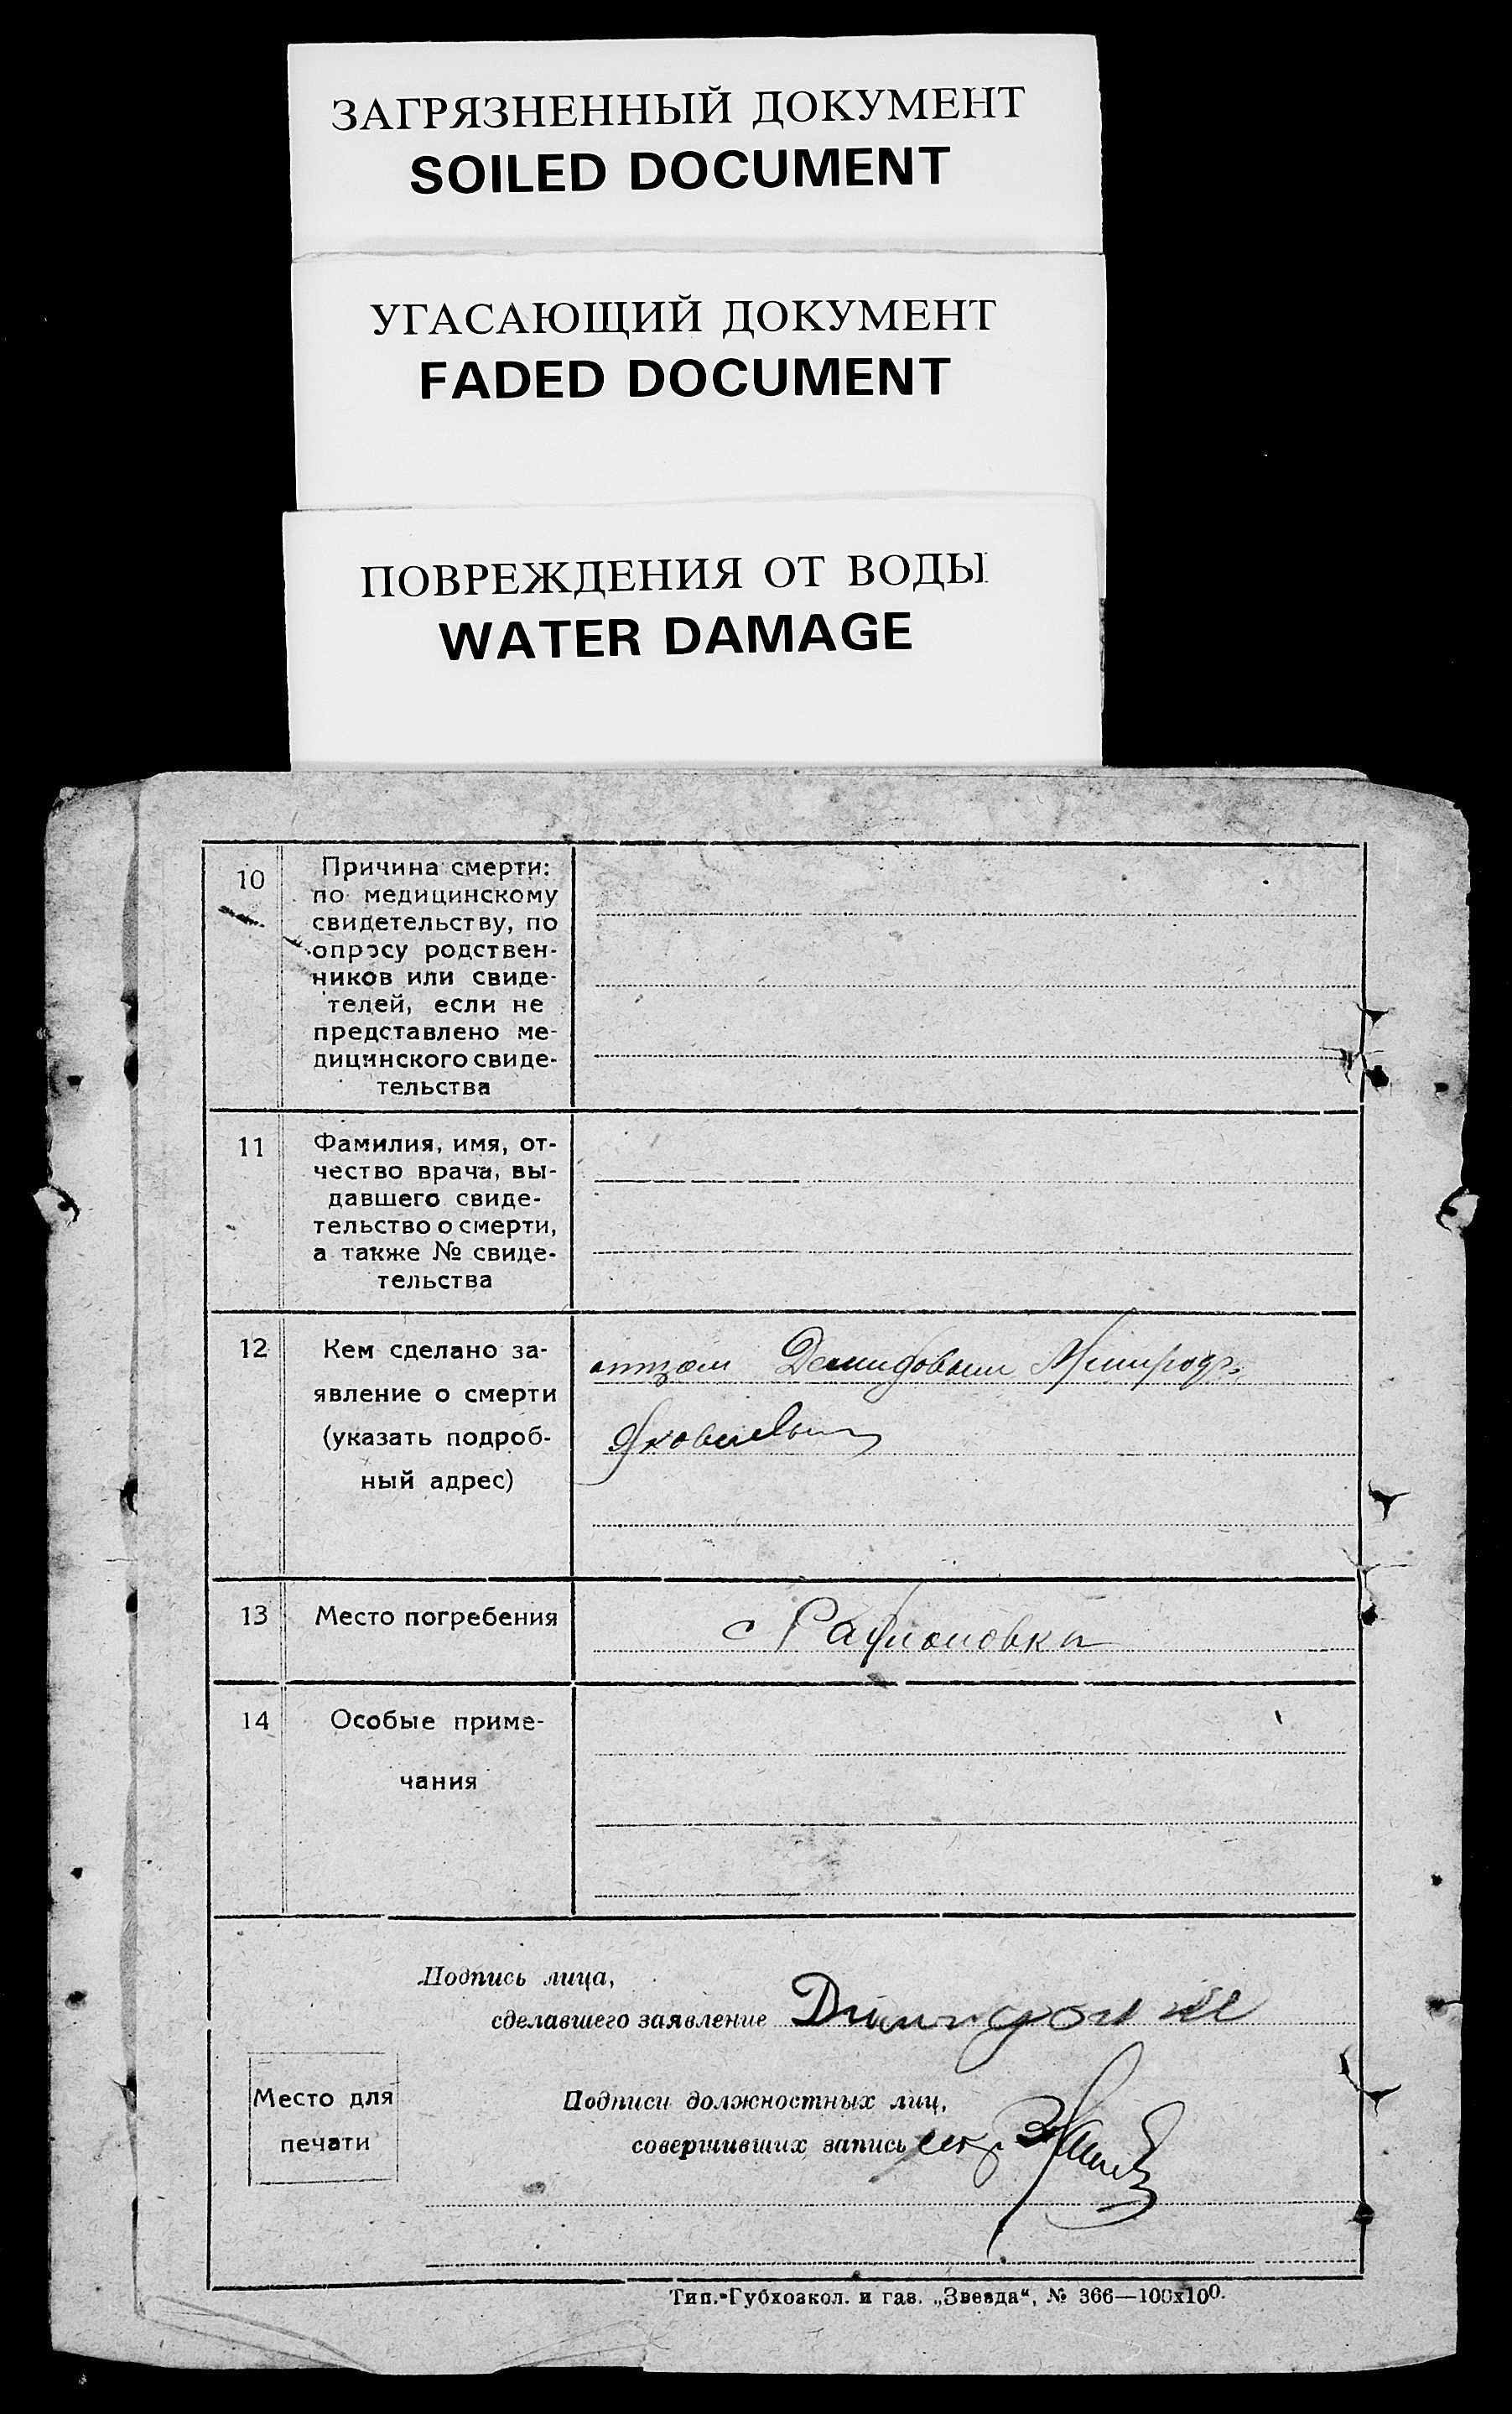 ЗАГРЯЗНЕННЫЙ ДОКУМЕНТ
SOILED DOCUMENT
УГАСАЮЩИЙ ДОКУМЕНТ
FADED DOCUMENT
ПОВРЕЖДЕНИЯ ОТ ВОДЫ
WATER DAMAGE
10 Причина смерти:
по медицинскому
свидетельству, по
опросу родствен-
ников или свиде-
телей, если не
представлено ме-
дицинского свиде-
тельства
11 Фамилия, имя, от-
чество врача, вы-
давшего свиде-
тельство о смерти,
а также № свиде-
тельства
12 Кем сделано за-
явление о смерти
(указать подроб-
ный адрес)
отцом Демидовым
Яковлевым
13 Место погребения
с
14 Особые приме-
чания
Подпись лица,
сделавшего заявление
Место для
печати
Подписи должностных лиц,
совершивших запись
Тип. Губхозкол. и газ. „Звезда“, № 366—100х100.